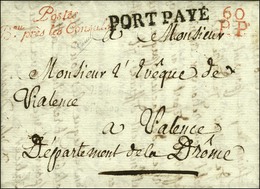 Postes
Bau près les Consuls
PORT PAYÉ
60
P P
à Monsieur
Monsieur l'Evêque de
Valence
à Valence
Département de la Drôme